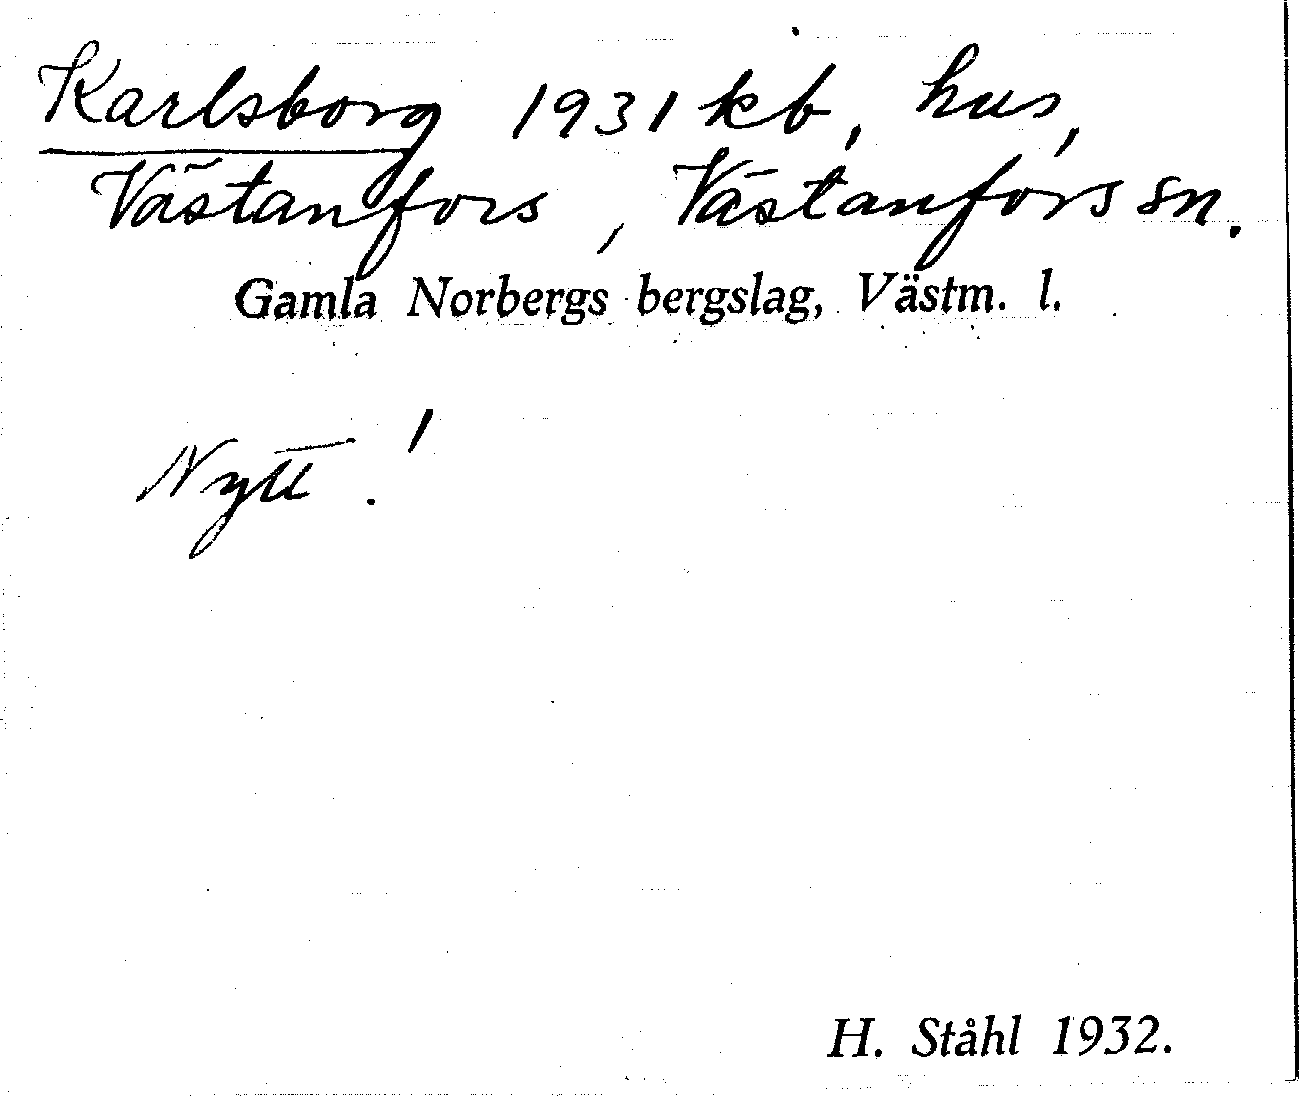 Karlsborg 1931 kb, hus,
Västanfors, Västanfors sn.
Gamla Norbergs bergslag, Västm. l.
Nytt!
H. Ståhl 1932.